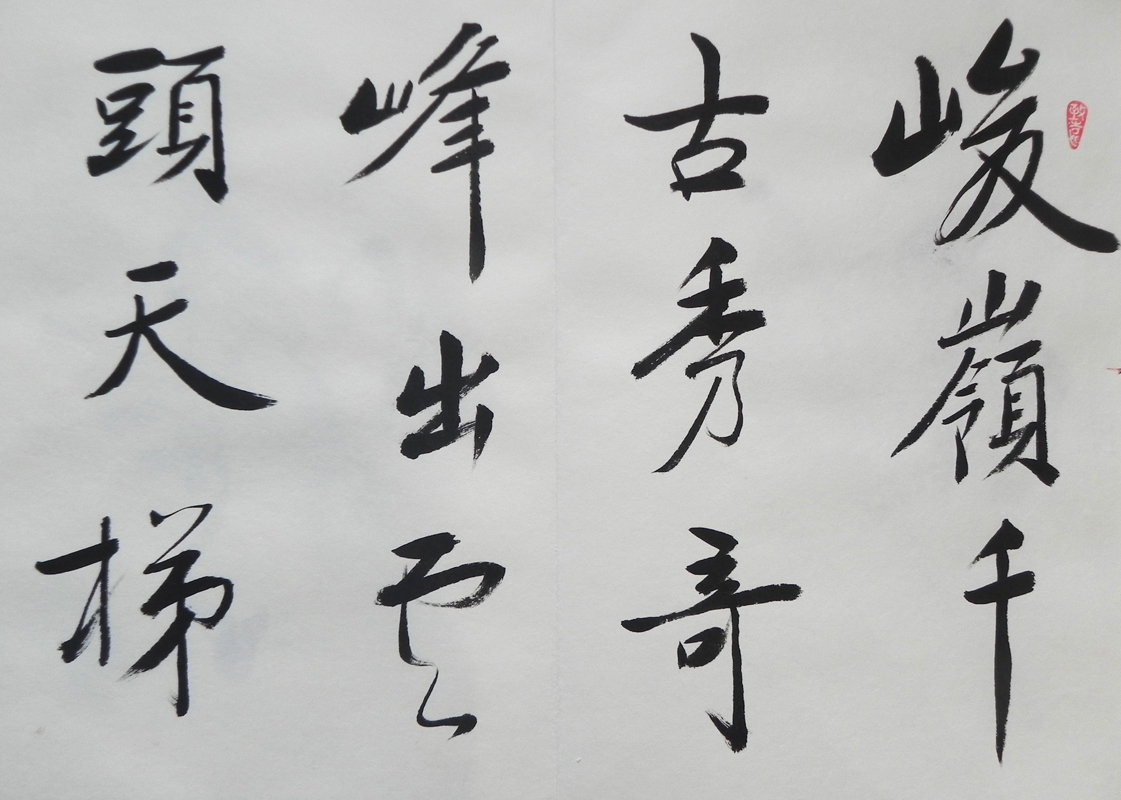 峻嶺千
古秀奇
峰出雲
頭天梯